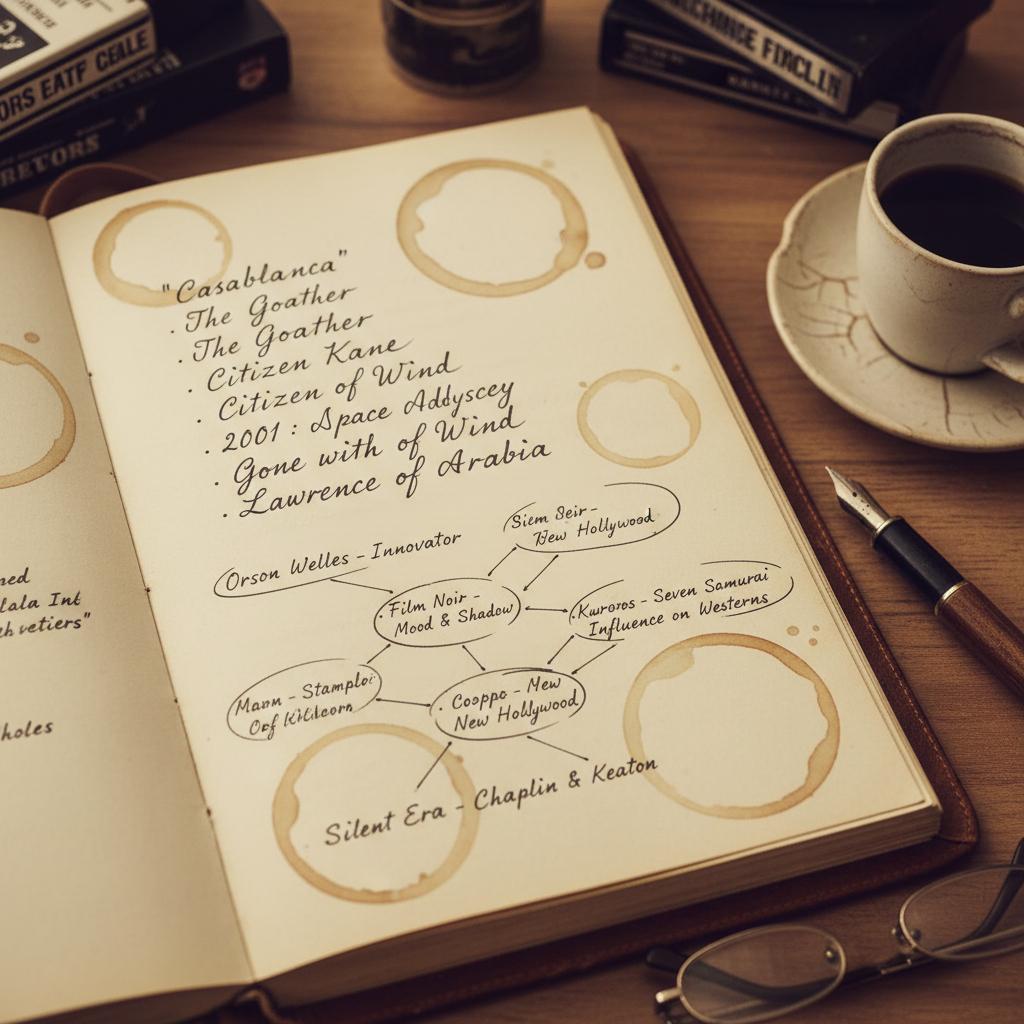 ORS EATF CEALE
RETORS
FIXCLLN
ned
lala Int
vetiers"
holes
"Casablanca"
· The Goather
· The Goather
· Citizen Kane
· Citizen of Wind
· 2001 : Space Addyscey
· Gone with of Wind
· Lawrence of Arabia
Orson Welles - Innovator
Siem Seir -
New Hollywood
· Film Noir -
Mood & Shadow
· Kuroros - Seven Samurai
Influence on Westerns
Mann - Stamploi
Oof
· Cooppo - Mew
New Hollywood
Silent Era - Chaplin & Keaton